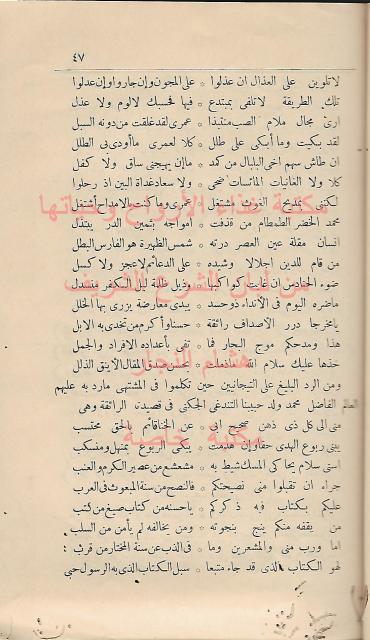 ٤٧
لا تلوين على العذال ان عذلوا * على المجون وان جاروا وان عدلوا
تلك الطريقة لا تلفى بمبتدع * فيها فحسبك لا لوم ولا عذل
ارى مجال ملام الصب منتبذا * عمرى لقد غلقت من دونه السبل
لقد بكيت وما أبكى على طلل * كلا لعمرى ما أودى بى الطلل
ان طاش سهم اخى البلبال من كمد * ما إن يهيجنى ساق ولا كفل
كلا ولا الغانيات المائسات ضحى * ولا سعاد غداة البين اذ رحلوا
لكننى بمديح الغوث مشتغل * عمرى وما كنت بالامداح أشتغل
محمد الخضر الطمطام من قذفت * امواجه بثمين الدر يبتذل
انسان مقلة عين العصر درته * شمس الظهيرة هو الفارس البطل
من قام للدين اجلالا وشيده * على الدعائم لا عجز ولا كسل
ضوء الحنادس ان غابت كواكبها * وذيل ظلمة ليل الكفر منسدل
ما ضره اليوم فى الأنداء ذو حسد * يبدى معارضة يزرى بها الخلل
يا مخرجا درر الأصداف رائقة * حسنا وأكرم من تخدى به الابل
هذا ومدحكم موج البحار فما * تفى بأعداده الافراد والجمل
خذها عليك سلام الله ما * بحسن صدق المقال الأينق الذلل
ومن الرد البليغ على التيجانيين حين تكلموا فى المشتهى ما رد به عليهم
العالم الفاضل محمد ولد حبيبنا التندغى الجكنى فى قصيدته الرائقة وهى
منى الى كل ذى ذهن صحيح ابى * عن الخنا قائم بالحق محتسب
يبنى ربوع الهدى حقا وان هدمت * يبكى الربوع بمنهل ومنسكب
اسنى سلام يحاكى المسك شيط به * مشعشع من عصير الكرم والعنب
جراء ان تقبلوا منى نصيحتكم * فالنصح من سنة المبعوث فى العرب
عليكم بكتاب فيه ذكركم * يا حسنه من كتاب صيغ من كتب
من يقفه منكم ينج بنجوته * ومن يخالفه لم يأمن من السلب
اما ورب منى والمشعرين وما * فى الذب عن سنة المختار من قرب :
لهو الكتاب الذى قد جاء متبعا * سبل الكتاب الذى به الرسول حبى
مكتبة غذاء الأرواح وحياتها
من لبان الشرع الشريف
هشام النجار
مكتبة خاصة